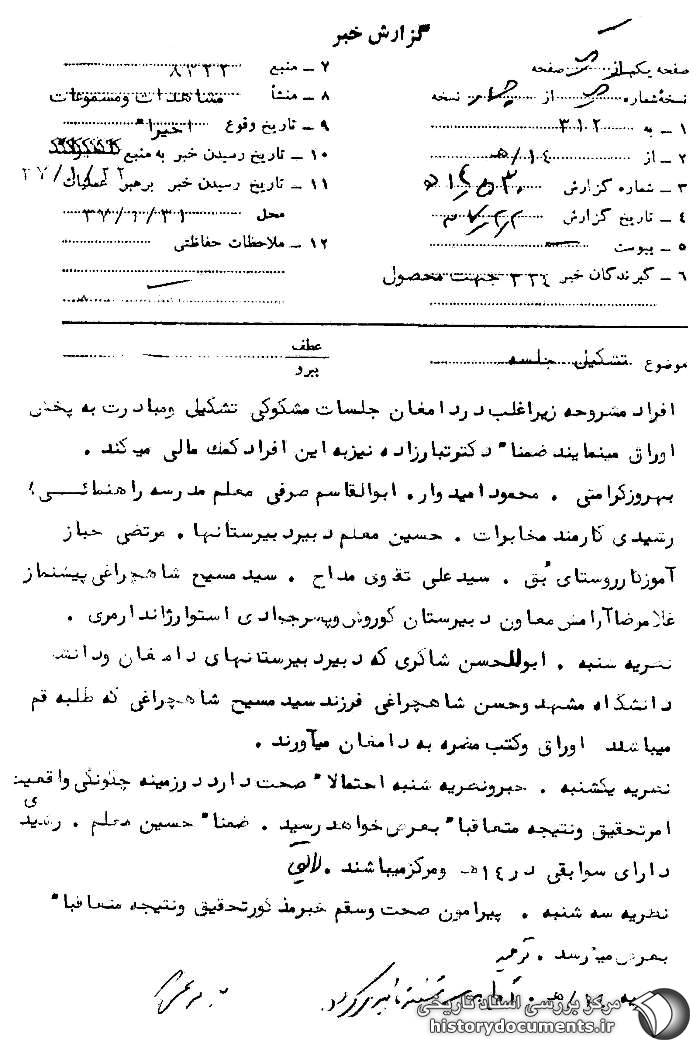 گزارش خبر
صفحه یکم از صفحه
نسخهٔ شماره از چهار نسخه
۱ ـ به ۳۱۲
۲ ـ از ۱٤/ه‍
۳ ـ شماره گزارش
٤ ـ تاریخ گزارش
۵ ـ پیوست
۶ ـ گیرندگان خبر ۳۳٤ جهت محصول
۷ ـ منبع ۸۳۲۲
۸ ـ منشأ مشاهدات ومسموعات
۹ ـ تاریخ وقوع اخیرا"
۱۰ ـ تاریخ رسیدن خبر به منبع
۱۱ ـ تاریخ رسیدن خبر برهبر عملیات ۳۷/۱/۲۲
محل ۳۷/۱/۳۱
۱۲ ـ ملاحظات حفاظتی
موضوع تشکیل جلسه
عطف
پیرو
افراد مشروحه زیراغلب دردامغان جلسات مشکوکی تشکیل ومبادرت به پخش
اوراق مینمایند ضمنا" دکترتبارزاده نیزبه این افراد کمك مالی میکند .
بهروزکرامتی . محمود امیدوار. ابوالقاسم صرفی معلم مدرسه راهنمائی؛
رشیدی کارمند مخابرات . حسین معلم دبیردبیرستانها . مرتضی خباز
آموزگارروستای بُق . سیدعلی تقوی مداح . سید مسیح شاهچراغی پیشنماز
غلامرضاآرامش معاون دبیرستان کوروش وپسرجدادی استوارژاندارمری .
نظریه شنبه . ابوللحسن شاکری که دبیردبیرستانهای دامغان ودانشـ
دانشگاه مشهد وحسن شاهچراغی فرزند سید مسیح شاهچراغی که طلبه قم
میباشند اوراق وکتب مضره به دامغان میآورند .
نظریه یکشنبه . خبرونظریه شنبه احتمالا" صحت دارد درزمینه چگونگی واقعیت
امرتحقیق ونتیجه متعاقبا" بعرض خواهد رسید . ضمنا" حسین معلم . رشیدی
دارای سوابقی در۱٤ه‍ ومرکزمیباشند .
نظریه سه شنبه . پیرامون صحت وسقم خبرمذکورتحقیق ونتیجه متعاقبا"
بعرض میرسد .
مرکز بررسی اسناد تاریخی
historydocuments.ir